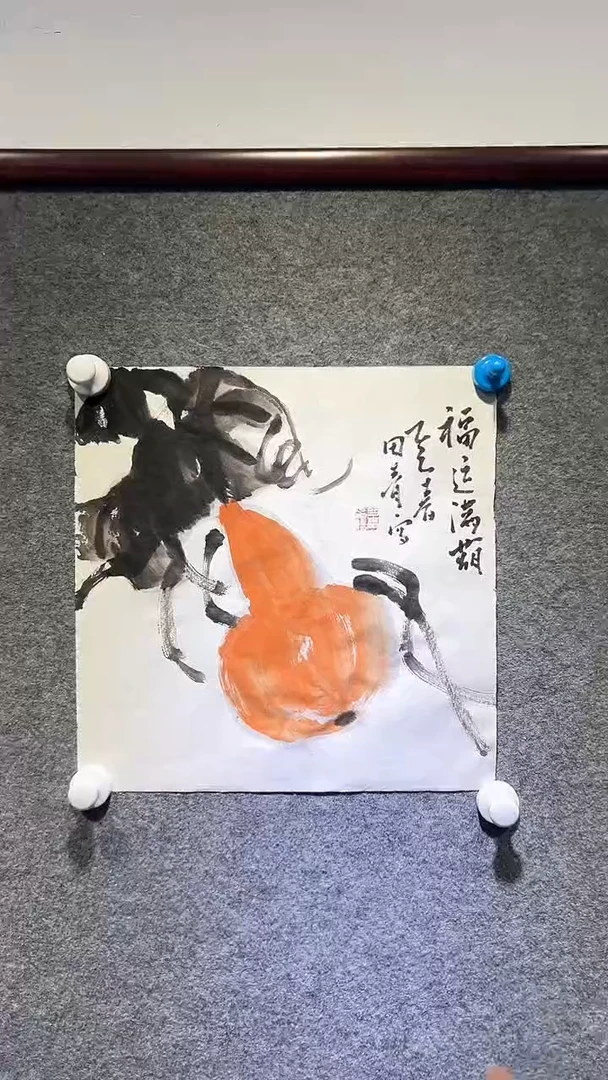 福运满葫
乙巳春
田青写